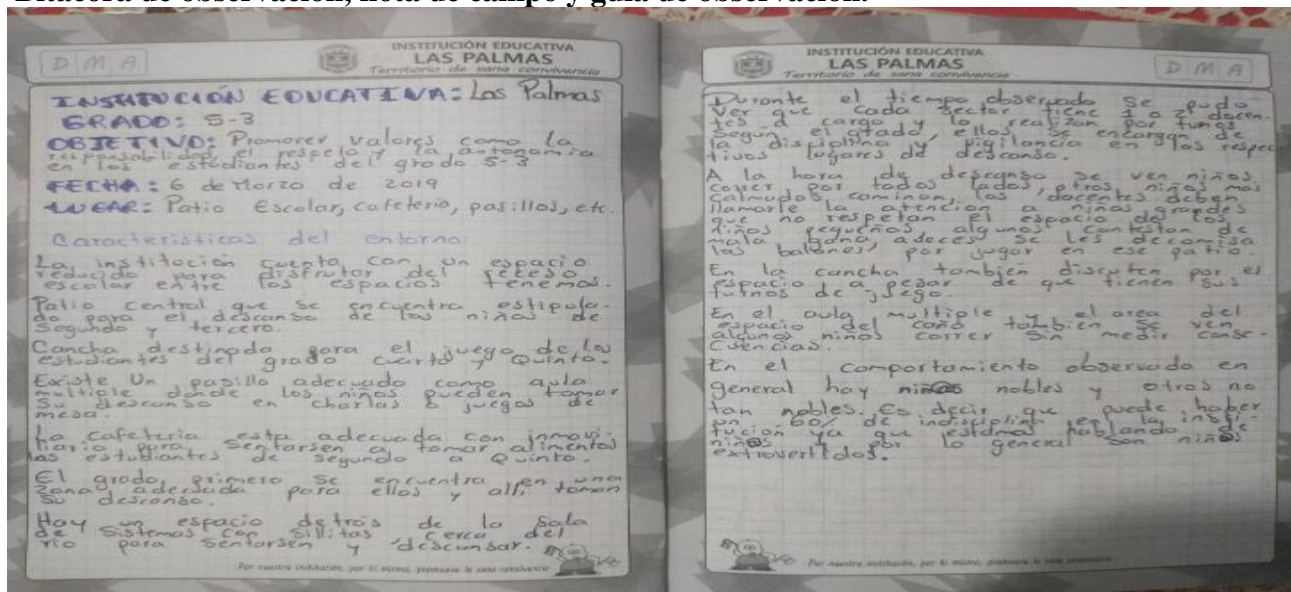 Bitácora de observación, nota de campo y guía de observación.
D M A
INSTITUCIÓN EDUCATIVA
LAS PALMAS
Territorio de sana convivencia
INSTITUCIÓN EDUCATIVA: Las Palmas
GRADO: 5-3
OBJETIVO: Promover valores como la
responsabilidad, el respeto y la autonomia
en los estudiantes del grado 5-3
FECHA: 6 de Marzo de 2019
LUGAR: Patio Escolar, cafeteria, pasillos, etc.
Caracteristicas del entorno:
La institución cuenta con un espacio
reducido para disfrutar del receso
escolar entre los espacios tenemos.
Patio central que se encuentra estipula-
do para el descanso de los niños de
Segundo y tercero.
Cancha destinada para el juego de los
estudiantes del grado cuarto y Quinto.
Existe Un pasillo adecuado como aula
multiple donde los niños pueden tomar
su descanso en charlas o juegos de
mesa.
La cafeteria esta adecuada con inmovi-
liario para sentarsen a tomar alimentos
los estudiantes de segundo a Quinto.
El grado primero se encuentra en una
zona adecuada para ellos y alli toman
su descanso.
Hay un espacio detrás de la Sala
de Sistemas con sillitas cerca del
rio para sentarsen y descansar.
Por nuestra institución, por ti mismo, promueve la sana convivencia
INSTITUCIÓN EDUCATIVA
LAS PALMAS
Territorio de sana convivencia
D M A
Durante el tiempo observado se pudo
ver que cada sector tiene 1 o 2 docen-
tes a cargo y lo realizan por turnos
según el grado, ellos se encargan de
la disciplina y vigilancia en los respec-
tivos lugares de descanso.
A la hora de descanso se ven niños
correr por todos lados, otros niños mas
calmudos caminan, los docentes deben
llamarle la atención a niños grandes
que no respetan el espacio de los
niños pequeños, algunos contestan de
mala gana, adeces se les decomisa
los balones, por jugar en ese patio.
En la cancha tambien discuten por el
espacio a pesar de que tienen sus
turnos de juego.
En el aula multiple y el area del
espacio del caño tambien se ven
algunos niños correr sin medir conse-
cuencias.
En el comportamiento observado en
general hay niños nobles y otros no
tan nobles. Es decir que puede haber
un 60% de indisciplina en la insti-
tución ya que estamos hablando de
niños por lo general son niños
extrovertidos.
Por nuestra institución, por ti mismo, promueve la sana convivencia